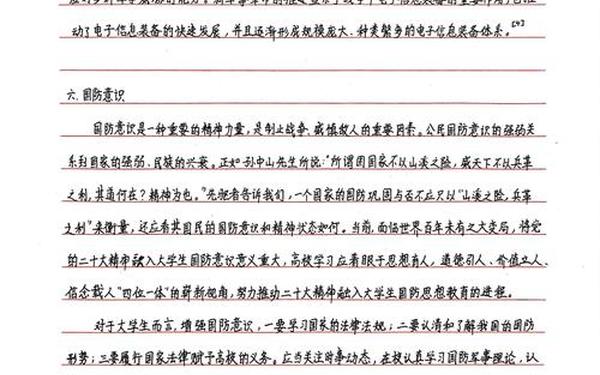 动了电子信息装备的快速发展，并且逐渐形成规模庞大、种类繁多的电子信息装备体系。[4]
六、国防意识
国防意识是一种重要的精神力量，是制止战争、威慑敌人的重要因素。公民国防意识的强弱关
系到国家的强弱、民族的兴衰。正如孙中山先生所说："所谓固国家不以山溪之险，威天下不以兵革
之利，其道何在？精神为也。"先驱者告诉我们，一个国家的国防巩固与否不应只以"山溪之险，兵革
之利"来衡量，还应看其国民的国防意识和精神状态如何。当前，面临世界百年未有之大变局，将党
的二十大精神融入大学生国防意识意义重大，高校学习应着眼于思想育人、道德引人、价值立人、
信念载人"四位一体"的崭新视角，努力推动二十大精神融入大学生国防思想教育的进程。
对于大学生而言，增强国防意识，一要学习国家的法律法规；二要认清和了解我国的国防
形势；三要履行国家法律赋予高校的义务。应当关注时事动态，在校认真学习国防军事理论，认